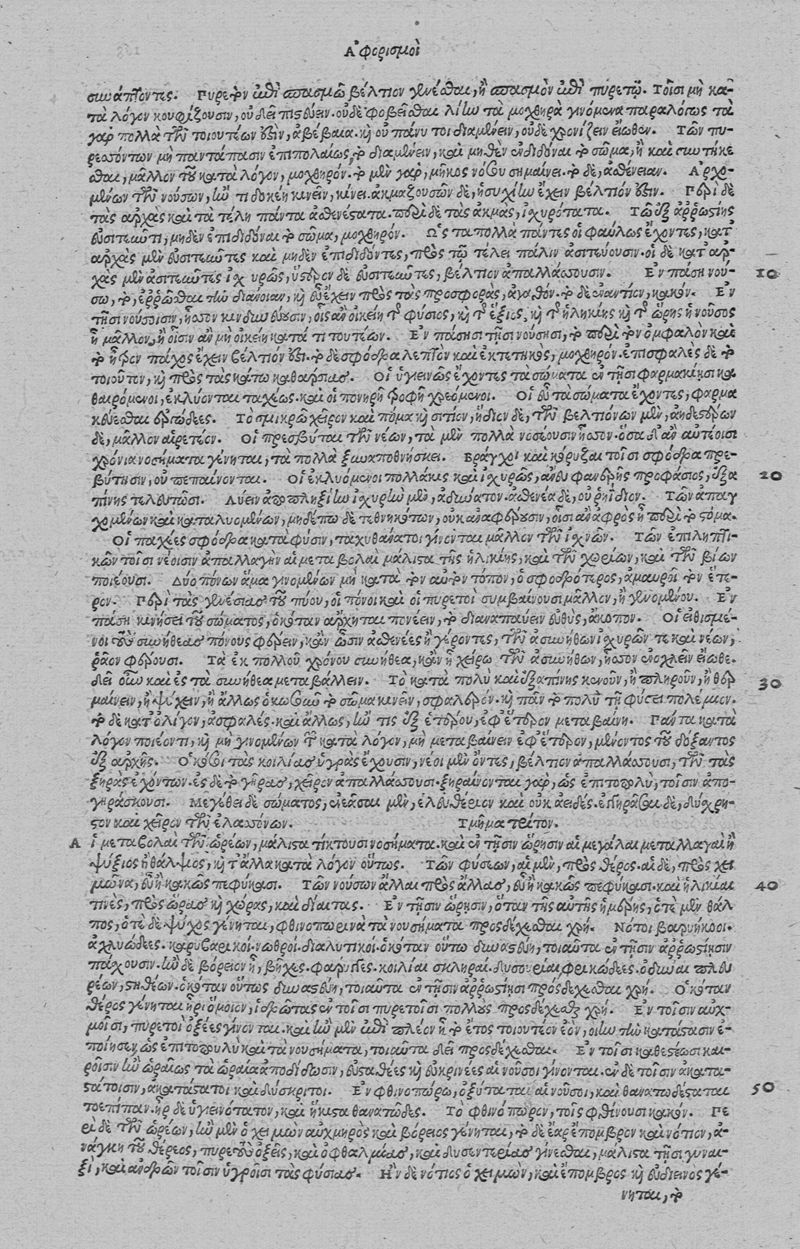 Ἀφορισμοὶ
συνάπτοντες. Πυρετὸν ἐπὶ σπασμῷ βέλτιον γενέσθαι, ἢ σπασμὸν ἐπὶ πυρετῷ. Τοῖσι μὴ κα-
τὰ λόγον κουφίζουσιν, οὐ δεῖ πιστεύειν. οὐδὲ φοβεῖσθαι λίην τὰ μοχθηρὰ γινόμενα παραλόγως τὰ
γὰρ πολλὰ τῶν τοιουτέων ἐστὶν, ἀβέβαια. καὶ οὐ πάνυ τοι διαμένειν, οὐδὲ χρονίζειν εἴωθεν. Τῶν πυ-
ρεσσόντων μὴ παντάπασιν ἐπιπολαίως, τὸ διαμένειν, καὶ μηθὲν ἐνδιδόναι τὸ σῶμα, ἢ καὶ συντήκε
σθαι, μᾶλλον τοῦ κατὰ λόγον, μοχθηρόν. τὸ μὲν γὰρ, μῆκος νόσου σημαίνει. τὸ δὲ, ἀσθένειαν. Ἀρχο-
μένων τῶν νούσων, ἤν τι δοκέῃ κινεῖν, κίνει. ἀκμαζουσῶν δὲ, ἡσυχίην ἔχειν βέλτιόν ἐστιν. Περὶ δὲ
τὰς ἀρχὰς καὶ τὰ τέλη πάντα ἀσθενέστατα. περὶ δὲ τὰς ἀκμὰς, ἰσχυρότατα. Τῷ ἐξ ἀῤῥωστίης
εὐσιτεῦντι, μηδὲν ἐπιδιδόναι τὸ σῶμα, μοχθηρόν. Ὡς τὰ πολλὰ πάντες οἱ φαύλως ἔχοντες, κατ᾽
ἀρχὰς μὲν εὐσιτεῦντες καὶ μηδὲν ἐπιδιδόντες, πρὸς τῷ τέλει πάλιν ἀσιτεύουσιν. οἱ δὲ κατ᾽ ἀρ-
χὰς μὲν ἀσιτεῦντες ἰσχυρῶς, ὕστερον δὲ εὐσιτεῦντες, βέλτιον ἀπαλλάσσουσιν. Ἐν πάσῃ νού- 10
σῳ, τὸ, ἐῤῥῶσθαι τὴν διάνοιαν, καὶ εὖ ἔχειν πρὸς τὰς προσφορὰς, ἀγαθόν. τὸ δὲ ἐναντίον, κακόν. Ἐν
τῇσι νούσοισιν, ἧσσον κινδυνεύουσιν, οἷς ἂν οἰκείη τῆς φύσιος, καὶ τῆς ἕξιος, καὶ τῆς ἡλικίης καὶ τῆς ὥρης ἡ νοῦσος
ᾖ μᾶλλον, ἢ οἷσιν ἂν μὴ οἰκείη κατά τι τουτέων. Ἐν πάσῃσι τῇσι νούσῃσι, τὸ περὶ τὸν ὀμφαλὸν καὶ
τὸ ἦτρον πάχος ἔχειν βέλτιόν ἐστι. τὸ δὲ σφόδρα λεπτὸν καὶ ἐκτετηκὸς, μοχθηρόν. ἐπισφαλὲς δὲ τὸ
τοιοῦτον, καὶ πρὸς τὰς κάτω καθάρσιας. Οἱ ὑγιεινῶς ἔχοντες τὰ σώματα ἐν τῇσι φαρμακίῃσι κα
θαιρόμενοι, ἐκλύονται ταχέως. καὶ οἱ πονηρῇ τροφῇ χρεόμενοι. Οἱ εὖ τὰ σώματα ἔχοντες, φαρμα
κεύεσθαι ἐργώδεες. Τὸ σμικρῷ χεῖρον καὶ πόμα καὶ σιτίον, ἥδιον δὲ, τῶν βελτιόνων μὲν, ἀηδεστέρων
δὲ, μᾶλλον αἱρετέον. Οἱ πρεσβύται τῶν νέων, τὰ μὲν πολλὰ νοσέουσιν ἧσσον. ὅσα δ᾽ ἂν αὐτέοισι
χρόνια νοσήματα γένηται, τὰ πολλὰ ξυναποθνήσκει. Βράγχοι καὶ κόρυζαι τοῖσι σφόδρα πρε-
βύτῃσιν, οὐ πεπαίνονται. Οἱ ἐκλυόμενοι πολλάκις καὶ ἰσχυρῶς, ἄνευ φανερῆς προφάσιος, ἐξα 20
πίνης τελευτῶσι. Λύειν ἀποπληξίην ἰσχυρὴν μὲν, ἀδύνατον. ἀσθενέα δὲ, οὐ ῥηίδιον. Τῶν ἀπαγ
χομένων καὶ καταλυομένων, μηδέπω δὲ τεθνηκότων, οὐκ ἀναφέρουσιν, οἷσι ἂν ἀφρὸς ᾖ περὶ τὸ στόμα.
Οἱ παχέες σφόδρα κατὰ φύσιν, ταχυθάνατοι γίνονται μᾶλλον τῶν ἰσχνῶν. Τῶν ἐπιληπτι-
κῶν τοῖσι νέοισιν ἀπαλλαγὴν αἱ μεταβολαὶ μάλιστα τῆς ἡλικίης, καὶ τῶν χωρίων, καὶ τῶν βίων
ποιέουσι. Δύο πόνων ἅμα γινομένων μὴ κατὰ τὸν αὐτὸν τόπον, ὁ σφοδρότερος, ἀμαυροῖ τὸν ἕτε-
ρον. Περὶ τὰς γενέσιας τοῦ πύου, οἱ πόνοι καὶ οἱ πυρετοὶ συμβαίνουσι μᾶλλον, ἢ γενομένου. Ἐν
πάσῃ κινήσει τοῦ σώματος, ὁκόταν ἄρχηται πονέειν, τὸ διαναπαύειν εὐθὺς, ἄκοπον. Οἱ εἰθισμέ-
νοι τοὺς συνήθεας πόνους φέρειν, κἢν ὦσιν ἀσθενέες ἢ γέροντες, τῶν ἀσυνήθων ἰσχυρῶν τε καὶ νέων,
ῥᾷον φέρουσι. Τὰ ἐκ πολλοῦ χρόνου συνήθεα, κἂν ᾖ χείρω τῶν ἀσυνήθων, ἧσσον ἐνοχλεῖν εἴωθε.
δεῖ οὖν καὶ ἐς τὰ ἀσυνήθεα μεταβάλλειν. Τὸ κατὰ πολὺ καὶ ἐξαπίνης κενοῦν, ἢ πληροῦν, ἢ θερ 30
μαίνειν, ἢ ψύχειν, ἢ ἄλλως ὁκωσοῦν τὸ σῶμα κινεῖν, σφαλερόν. καὶ πᾶν τὸ πολὺ τῇ φύσει πολέμιον.
τὸ δὲ κατ᾽ ὀλίγον, ἀσφαλές. καὶ ἄλλως, ἤν τις ἐξ ἑτέρου, ἐφ᾽ ἕτερον μεταβαίνῃ. Πάντα κατὰ
λόγον ποιέοντι, καὶ μὴ γινομένων τῶν κατὰ λόγον, μὴ μεταβαίνειν ἐφ᾽ ἕτερον, μένοντος τοῦ δόξαντος
ἐξ ἀρχῆς. Ὁκόσοι τὰς κοιλίας ὑγρὰς ἔχουσιν, νέοι μὲν ὄντες, βέλτιον ἀπαλλάσσουσι, τῶν τὰς
ξηρὰς ἐχόντων. ἐς δὲ τὸ γῆρας, χεῖρον ἀπαλλάσσουσι. ξηραίνονται γὰρ, ὡς ἐπιτοπολὺ, τοῖσιν ἀπο-
γηράσκουσι. Μεγέθει δὲ σώματος, ἐννεάσαι μὲν, ἐλευθέριον καὶ οὐκ ἀειδές. ἐγγηρᾶσαι δὲ, δύσχρη-
στον καὶ χεῖρον τῶν ἐλασσόνων. Τμῆμα τρίτον.
Αἱ μεταβολαὶ τῶν ὡρέων, μάλιστα τίκτουσι νοσήματα. καὶ ἐν τῇσιν ὥρῃσιν αἱ μεγάλαι μεταλλαγαὶ ἢ
ψύξιος ἢ θάλψιος, καὶ τ᾽ ἄλλα κατὰ λόγον οὕτως. Τῶν φύσεων, αἱ μὲν, πρὸς θέρος. αἱ δὲ, πρὸς χει
μῶνα, εὖ ἢ κακῶς πεφύκασι. Τῶν νούσων ἄλλαι πρὸς ἄλλας, εὖ ἢ κακῶς πεφύκασι. καὶ ἡλικίαι 40
τινὲς, πρὸς ὥρας καὶ χώρας, καὶ διαίτας. Ἐν τῇσιν ὥρῃσιν, ὅταν τῆς αὐτῆς ἡμέρης, ὁτὲ μὲν θάλ
πος, ὁτὲ δὲ ψῦχος γένηται, φθινοπωρινὰ τὰ νουσήματα προσδέχεσθαι χρή. Νότοι βαρυήκοοι.
ἀχλυώδεες. καρηβαρικοὶ. νωθροὶ. διαλυτικοί. ὁκόταν οὗτος δυναστεύῃ, τοιαῦτα ἐν τῇσιν ἀῤῥωστίῃσιν
πάσχουσιν. ἢν δὲ βόρειον ᾖ, βῆχες. φάρυγγες. κοιλίαι σκληραί. δυσουρίαι φρικώδεες. ὀδύναι πλευ
ρέων, στηθέων. ὁκόταν οὗτος δυναστεύῃ, τοιαῦτα ἐν τῇσιν ἀῤῥωστίῃσι προσδέχεσθαι χρή. Ὁκόταν
θέρος γένηται ἦρι ὅμοιον, ἱδρῶτας ἐν τοῖσι πυρετοῖσι πολλοὺς προσδέχεσθαι χρή. Ἐν τοῖσιν αὐχ-
μοῖσι, πυρετοὶ ὀξέες γίνονται. καὶ ἢν μὲν ἐπὶ πλέον ᾖ τὸ ἔτος τοιουτέον ἐὸν, οἵην τὴν κατάστασιν ἐ-
ποίησεν, ὡς ἐπιτοπουλὺ καὶ τὰ νουσήματα, τοιαῦτα δεῖ προσδέχεσθαι. Ἐν τοῖσι καθεστεῶσι και-
ροῖσιν ἢν ὡραίως τὰ ὡραῖα ἀποδιδῶσιν, εὐσταθέες καὶ εὐκρινέες αἱ νοῦσοι γίνονται. ἐν δὲ τοῖσιν ἀκατα-
στάτοισιν, ἀκατάστατοι καὶ δύσκριτοι. Ἐν φθινοπώρῳ, ὀξύταται αἱ νοῦσοι, καὶ θανατωδέσταται 50
τοεπίπαν. ἦρ δὲ ὑγιεινότατον, καὶ ἥκιστα θανατῶδες. Τὸ φθινόπωρον, τοῖς φθίνουσι κακόν. Πε
ρὶ δὲ τῶν ὡρέων, ἢν μὲν ὁ χειμὼν αὐχμηρὸς καὶ βόρειος γένηται, τὸ δὲ ἔαρ ἔπομβρον καὶ νότιον, ἀ-
νάγκη τοῦ θέρεος, πυρετοὺς ὀξεῖς, καὶ ὀφθαλμίας, καὶ δυσεντερίας γίνεσθαι, μάλιστα τῇσι γυναι-
ξὶ, καὶ ἀνδρῶν τοῖσιν ὑγροῖσι τὰς φύσιας. Ἢν δὲ νότιος ὁ χειμὼν, καὶ ἔπομβρος καὶ εὐδιεινὸς γέ-
νηται, τὸ